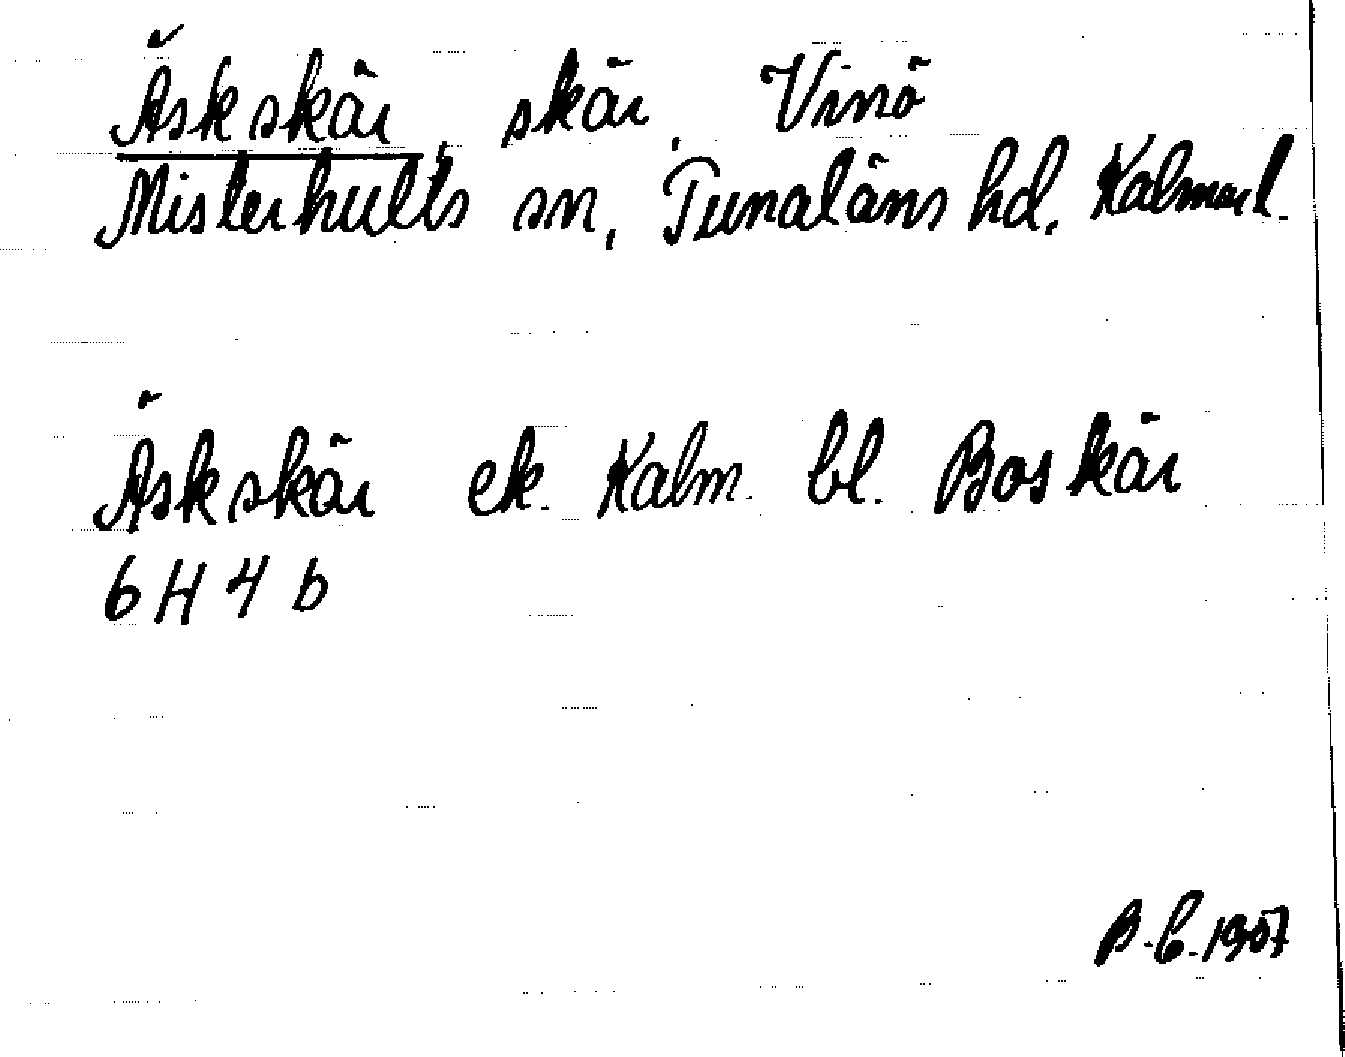 Äskskär, skär, Vinö
Misterhults sn, Tunaläns hd. Kalmar l.
Äskskär ek. Kalm. bl. Boskär
6H4b
B.C. 1957